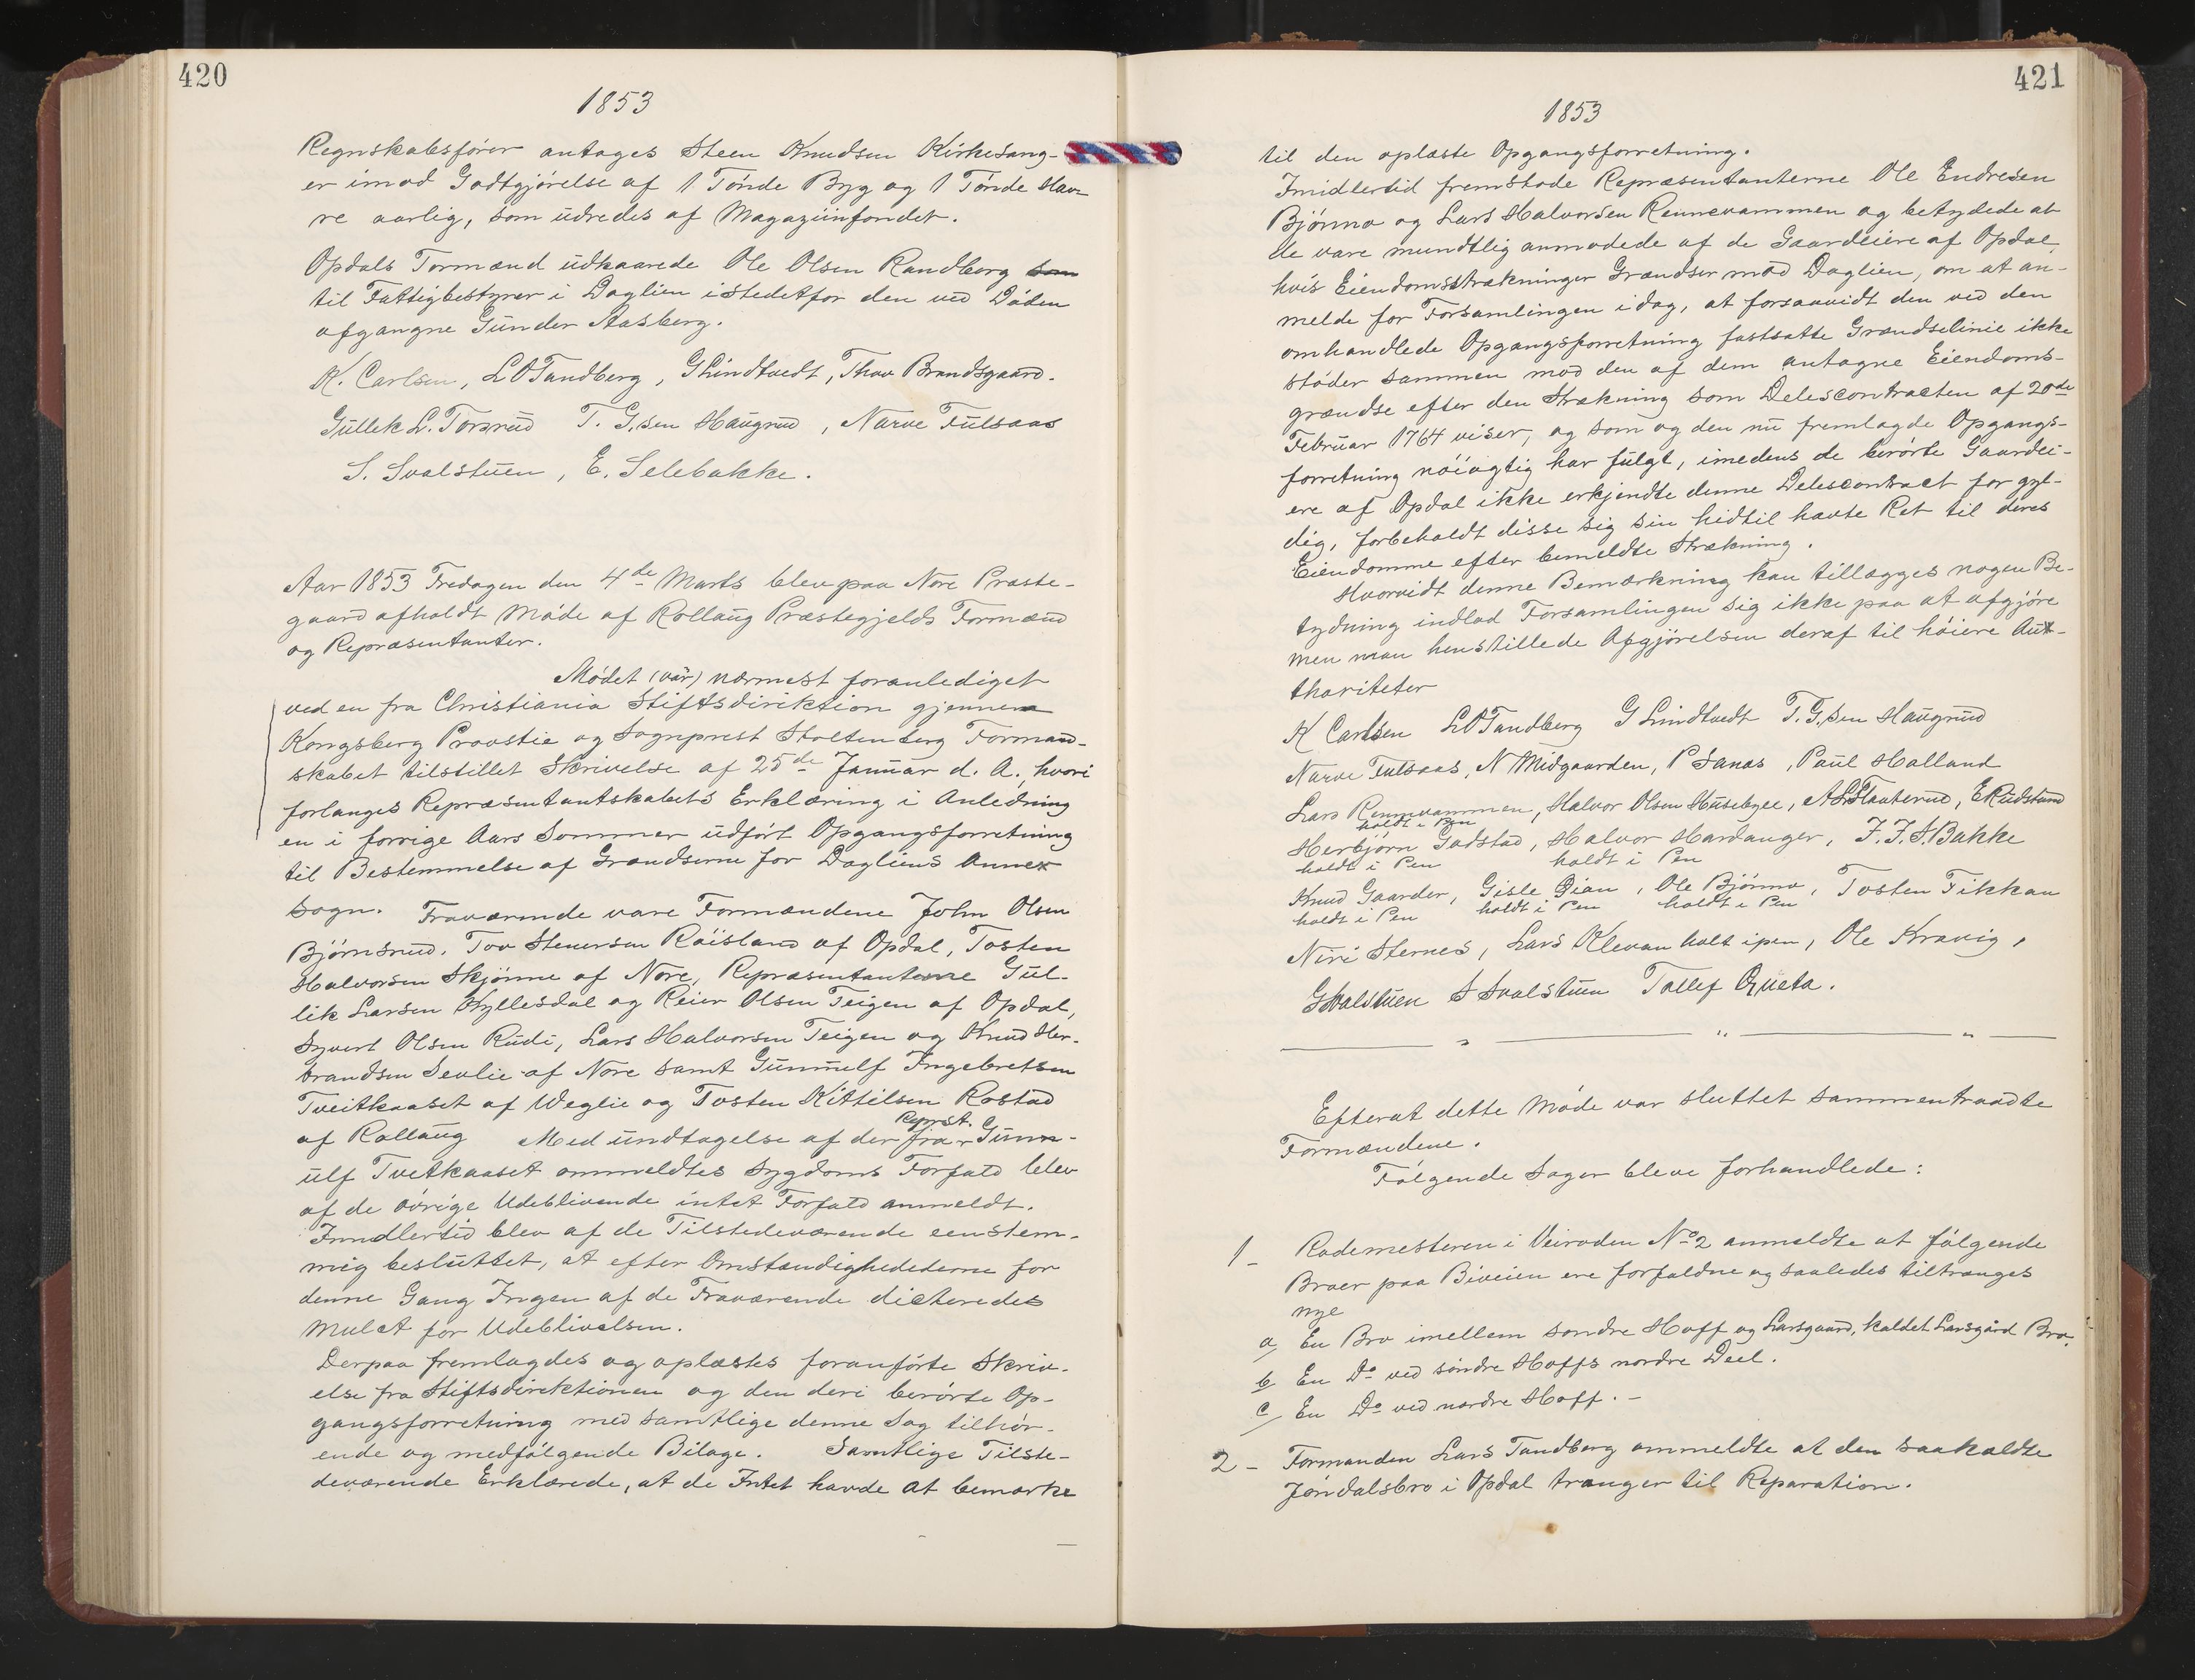 420
1853
Regnskabsfører antages Steen Knudsen Kirkesang-
er imod Godtgjørelse af 1 Tønde Byg og 1 Tønde Hav-
re aarlig, som udredes af Magazinfondet.
Opdals Formænd udkaarede Ole Olsen Randberg
til Fattigbestyrer i Daglien istedetfor den ved Døden
afgangne Gunder Aasberg.
K. Carlsen, L O Tandberg, G Lindtvedt, Thov Brandsgaard.
Gullek L. Torsrud T. G.sen Haugrud, Narve Fulsaas
S. Svalstuen, E. Selebakke.
Aar 1853 Fredagen den 4de Marts blev paa Nore Præste-
gaard afholdt Møde af Rollaug Præstegjelds Formænd
og Repræsentanter.
Mødet (var) nærmest foranlediget
ved en fra Christiania Stiftsdirektion gjennem
Kongsberg Provstie og Sognprest Stoltenberg Formand-
skabet tilstillet Skrivelse af 25de Januar d. A., hvori
forlanges Repræsentantskabets Erklæring i Anledning
en i forrige Aars Sommer udført Opgangsforretning
til Bestemmelse af Grændserne for Dagliens Annex
Sogn. Fraværende vare Formændene John Olsen
Bjørnsrud, Tov Steversen Røisland af Opdal, Tosten
Halvorsen Skjønne af Nore, Repræsentanterne Gul-
lik Larsen Hyllesdal og Reier Olsen Teigen af Opdal,
Syvert Olsen Rudi, Lars Halvorsen Teigen og Knud Her-
brandsen Sevlie af Nore samt Gunnulf Ingebretsen
Tveitkaaset af Weglie og Tosten Kittilsen Rostad
af Rollaug Med undtagelse af der fra Reprst. Gunn-
ulf Tvetkaaset anmeldtes Sygdoms Forfald blev
af de øvrige Udeblivende intet Forfald anmeldt.
Imidlertid blev af de Tilstedeværende eenstem-
mig besluttet, at efter Omstændighedederne for
denne Gang Ingen af de Fraværende dicteredes
Mulct for Udeblivelsen.
Derpaa fremlagdes og oplæstes foranførte Skriv-
else fra Stiftsdirektionen og den deri berørte Op-
gangsforretning med samtlige denne Sag tilhør-
ende og medfølgende Bilage. Samtlige Tilste-
deværende Erklærede, at de Intet havde at bemærke
421
1853
til den oplæste Opgangsforretning.
Imidlertid fremstode Repræsentanterne Ole Endresen
Bjønno og Lars Halvorsen Rennevammen og betydede at
de vare mundtlig anmodede af de Gaardeiere af Opdal,
hvis Eiendomsstrækninger Grændser mod Daglien, om at an-
melde for Forsamlingen idag, at forsaavidt den ved den
omhandlede Opgangsforretning fastsatte Grændselinie ikke
støder sammen med den af dem antagne Eiendoms-
grændse efter den Strækning som Delescontracten af 20de
Februar 1764 viser, og som og den nu fremlagde Opgangs-
forretning nøiagtig har fulgt, imedens de berørte Gaardei-
ere af Opdal ikke erkjendte denne Delescontract for gyl-
dig, forbeholdt disse sig sin hidtil havte Ret til deres
Eiendomme efter bemeldte Strækning.
Hvorvidt denne Bemærkning kan tillægges nogen Be-
tydning indlod Forsamlingen sig ikke paa at afgjøre
men man henstillede Afgjørelsen deraf til høiere Aut-
thoriteter
K Carlsen L O Tandberg G Lindtvedt T. G.sen Haugrud
Narve Fulsaas, N Midgaarden, P Sanas, Paul Holland
Lars Rennevammen, Halvor Olsen Husebyee, A L Flaaterud, E Rudstund
holdt i Pen
Herbjørn Gadstad, Halvor Hardanger, F. F. S. Bakke
holdt i Pen holdt i Pen
Knud Gaarder, Gisle Qian, Ole Bjønno, Tosten Fikkan
holdt i Pen holdt i Pen holdt i Pen
Niri Sternes, Lars Klevan holt ipen, Ole Kravig,
G Svalstuen S Svalstuen Tollef Qveta.
Efterat dette Møde var sluttet sammentraadte
Formændene.
Følgende Sager bleve forhandlede:
1 - Rodemesteren i Veiroden No 2 anmeldte at følgende
Broer paa Biveien ere forfaldne og saaledes tiltrænges
nye
a, En Bro imellem søndre Hoff og Larsgaard, kaldet Larsgård Bro.
b, En Do ved søndre Hoffs nordre Deel.
c, En Do ved nordre Hoff. -
2 - Formanden Lars Tandberg anmeldte at den saakaldte
Jøndalsbro i Opdal trænger til Reparation.